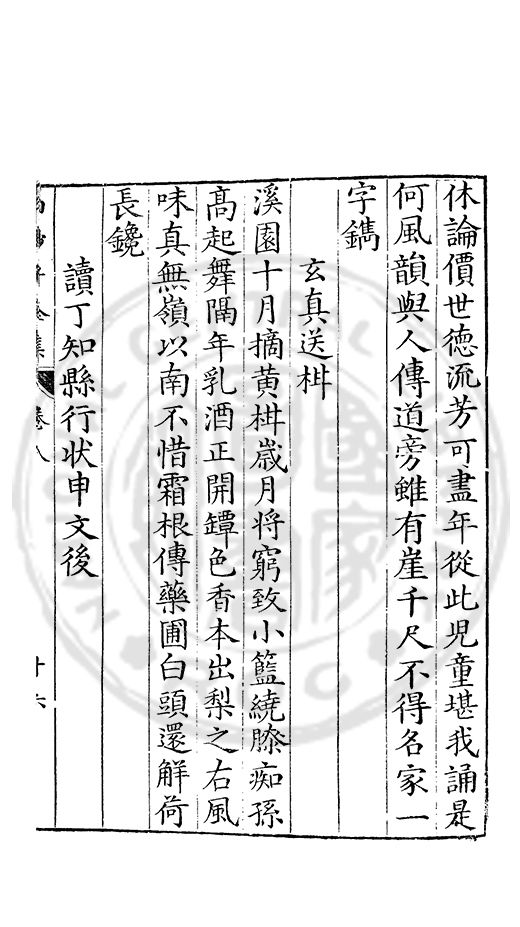 休論價世德流芳可盡年從此児童堪我誦是
何風韻與人傳道旁雖有崖千尺不得名家一
字鐫
玄真送柑
溪園十月摘黄柑歲月将窮致小籃繞膝痴孫
髙起舞隔年乳酒正開罈色香本出梨之右風
味真無嶺以南不惜霜根傳藥圃白頭還觧荷
長鑱
讀丁知縣行状申文後
集 卷八
十六